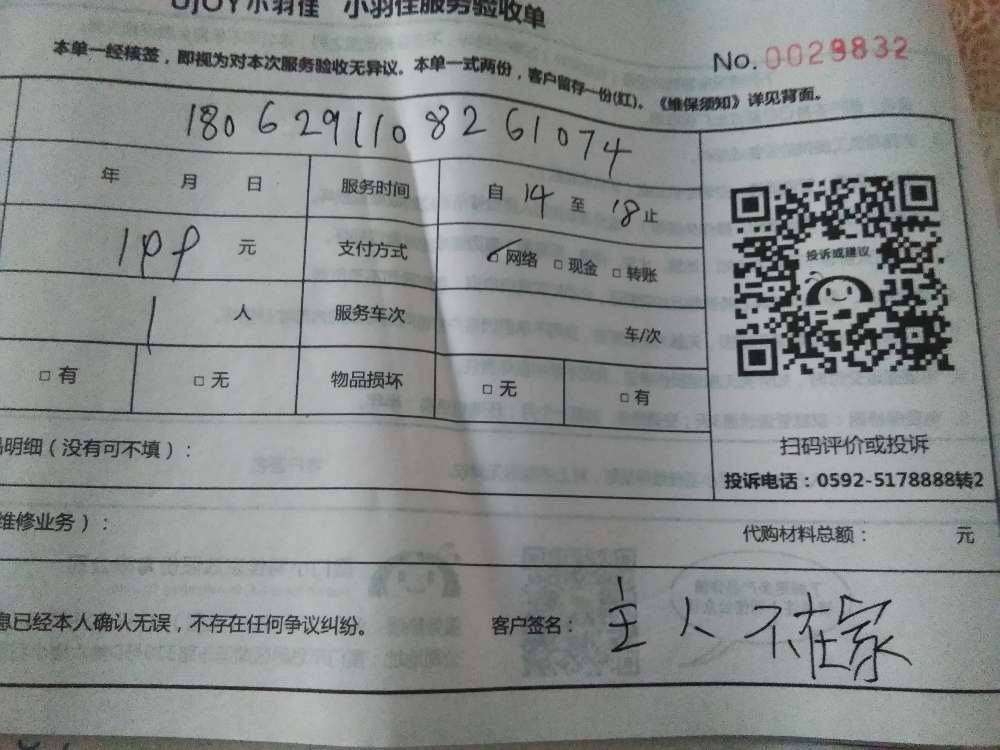 UJOY小羽佳 小羽佳服务验收单
本单一经核签，即视为对本次服务验收无异议。本单一式两份，客户留存一份(红)。《维保须知》详见背面。
No.0029832
1806291108261074
年 月 日 服务时间 自 14 至 18 止
199 元 支付方式 ☑网络 □现金 □转账
投诉或建议
1 人 服务车次 车/次
□有 □无 物品损坏 □无 □有
扫码评价或投诉
明细（没有可不填）：
投诉电话：0592-5178888转2
维修业务）：
代购材料总额： 元
息已经本人确认无误，不存在任何争议纠纷。 客户签名：主人不在家